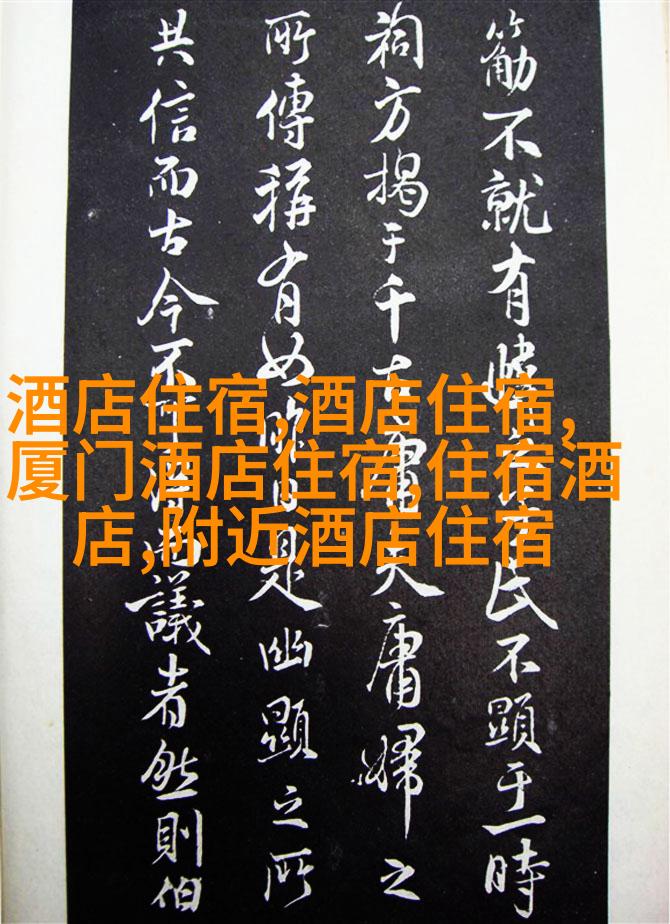 不就有氏不顯于一時
祠方揭于千古夫庸婦之
所傳稱有如是幽顯之所
共信而古今不議者然則伯
酒店住宿,酒店住宿,
厦门酒店住宿,住宿酒
店,附近酒店住宿